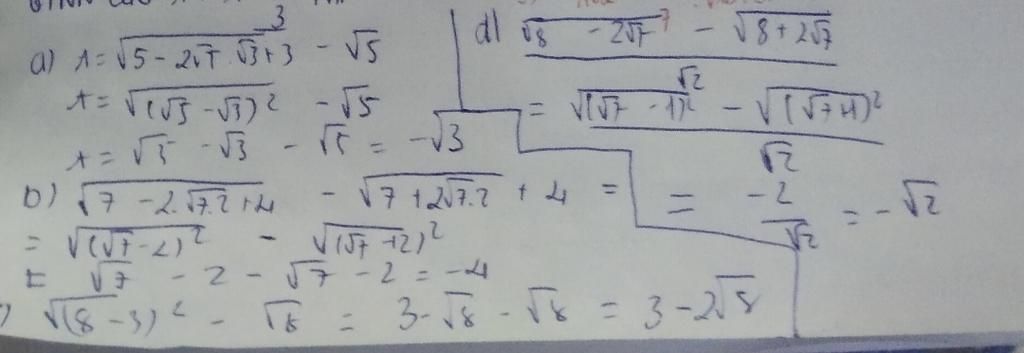 a) A = √(5 - 2√7.√3 + 3) - √5
A = √((√5 - √3)²) - √5
A = √5 - √3 - √5 = -√3
b) √(7 - 2.√7.2 + 4) - √(7 + 2√7.2) + 4 =
= √((√7 - 2)²) - √((√7 + 2)²)
= √7 - 2 - √7 - 2 = -4
√((8 - 3)²) - √8 = 3 - √8 - √8 = 3 - 2√8
d) (√8 - 2√7 - √(8 + 2√7)) / √2
= (√((√7 - 1)²) - √((√7 + 1)²)) / √2
= -2/√2 = -√2